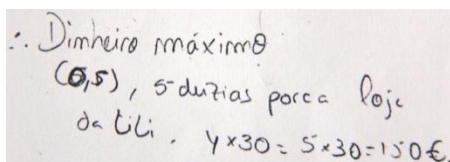 ∴ Dinheiro máximo
(0,5), 5 duzias porca loje
da Lili. y×30 = 5×30=150€